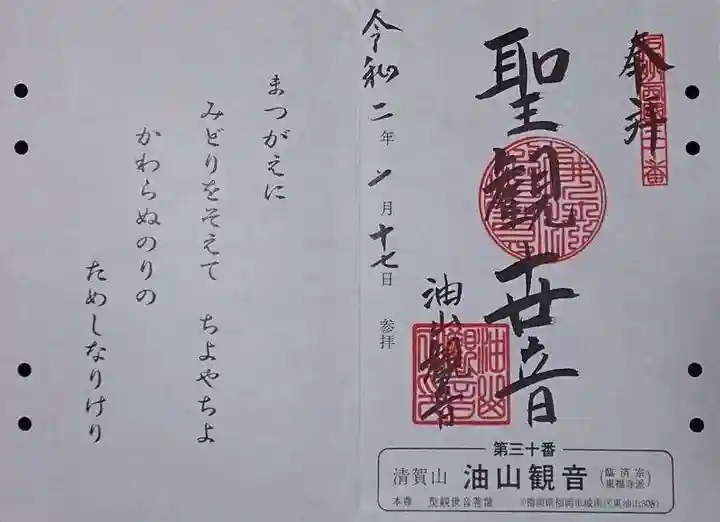 奉拝
聖観世音
油山観音
令和二年 月十七日 参拝
まつがえに
みどりをそえて ちよやちよ
かわらぬのりの
ためしなりけり
第三十番
清賀山 油山観音 (臨済宗 東福寺派)
本尊 聖観世音菩薩 福岡県福岡市城南区東油山508